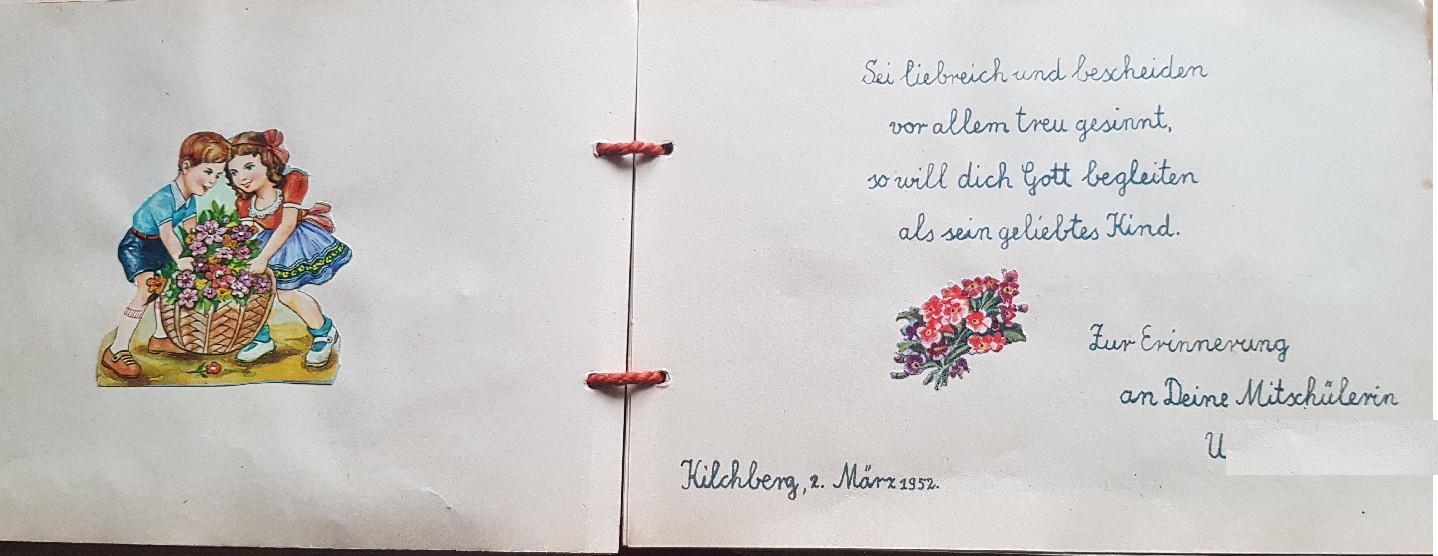 Sei liebreich und bescheiden
vor allem treu gesinnt,
so will dich Gott begleiten
als sein geliebtes Kind.
Zur Erinnerung
an Deine Mitschülerin
U
Kilchberg, 2. März 1952.